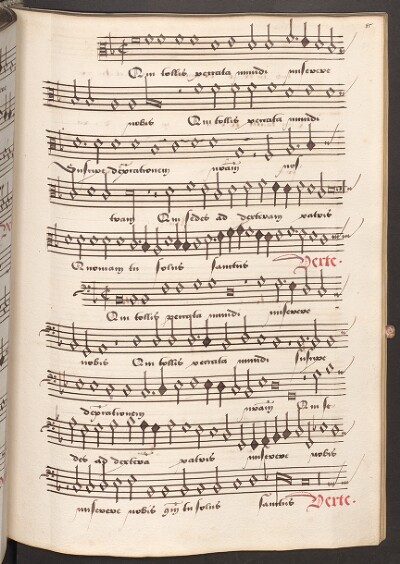 Qui tollis peccata mundi miserere
nobis Qui tollis peccata mundi
Suscipe deprationem nram nos
tram Qui sedes ad dexteram patris
Quoniam tu solus sanctus Verte.
Qui tollis peccata mundi miserere
nobis Qui tollis peccata mundi suscipe
deprationem nram Qui se
des ad dexterã patris miserere nobis
miserere nobis qm tu solus sanctus Verte.